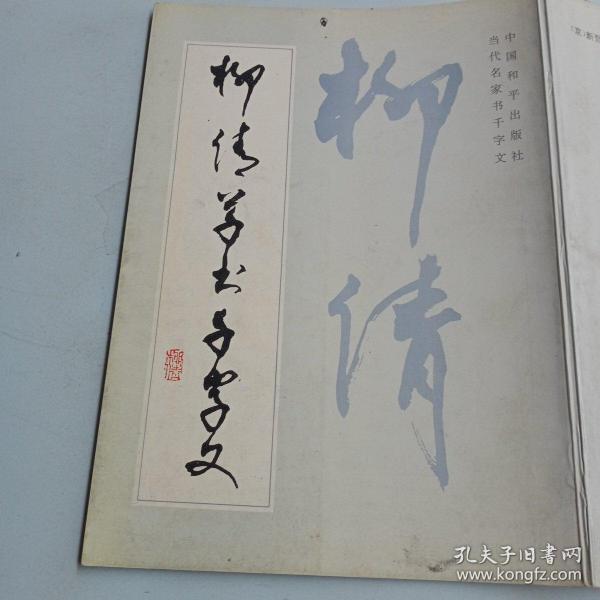 中国和平出版社
当代名家书千字文
柳倩
柳倩草书千字文
孔夫子旧书网
www.kongfz.com